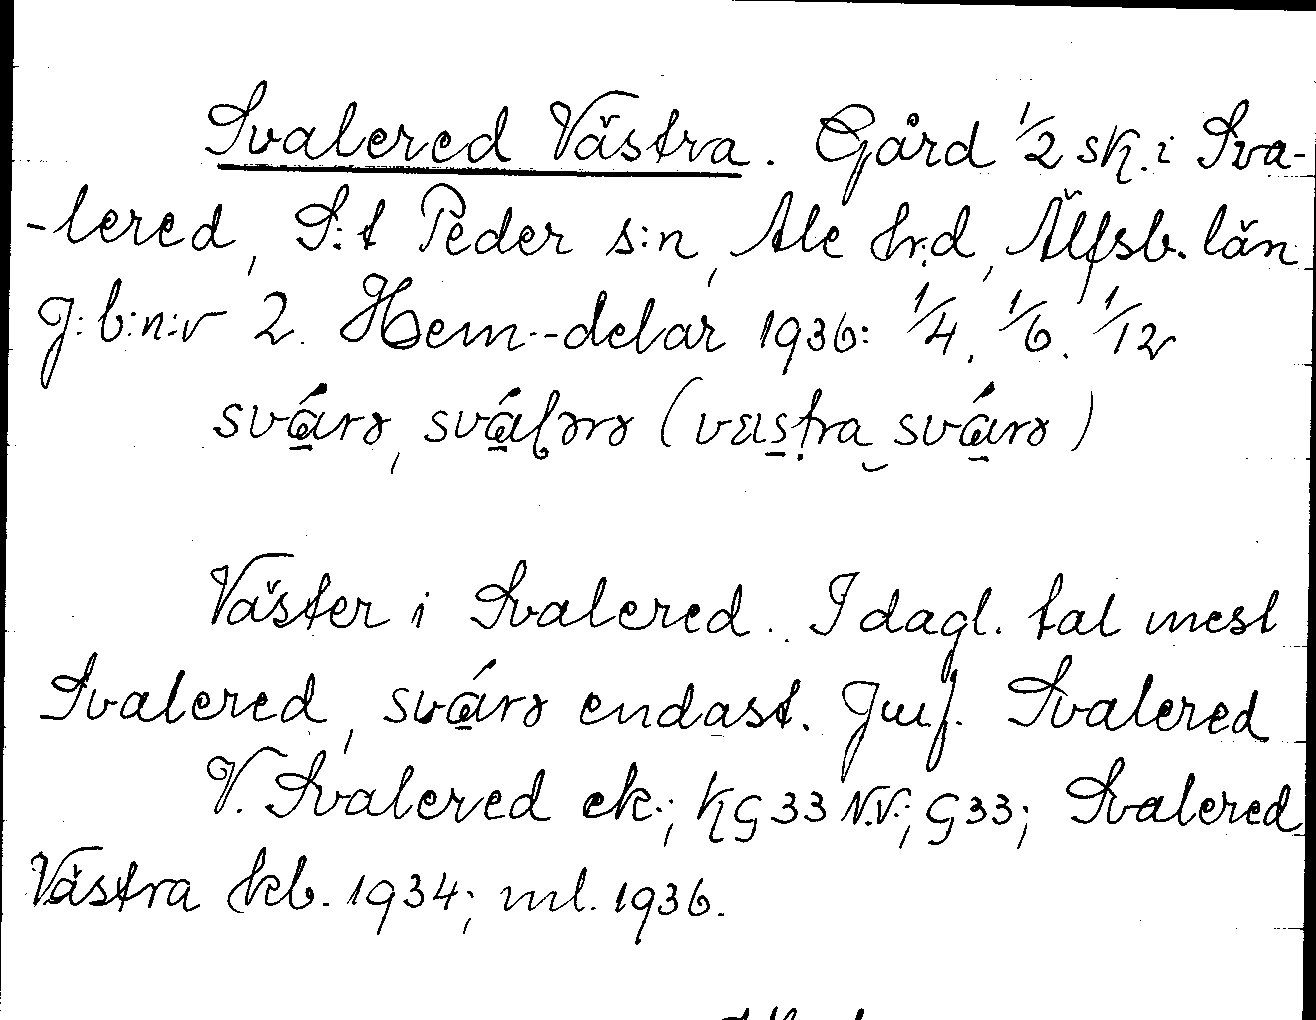 Svalered Västra. Gård 1/2 sk. i Sva-
-lered, S:t Peder s:n, Ale hrd, Älfsb. län
J:b:n:r 2. Hem.-delar 1936: 1/4, 1/6, 1/12
svárə, sváḷərə (västra svárə)
Väster i Svalered. I dagl. tal mest
Svalered, svárə endast. Jmf. Svalered
V. Svalered ek.; KG 33 N.V.; G 33; Svalered
Västra kb. 1934; ml. 1936.